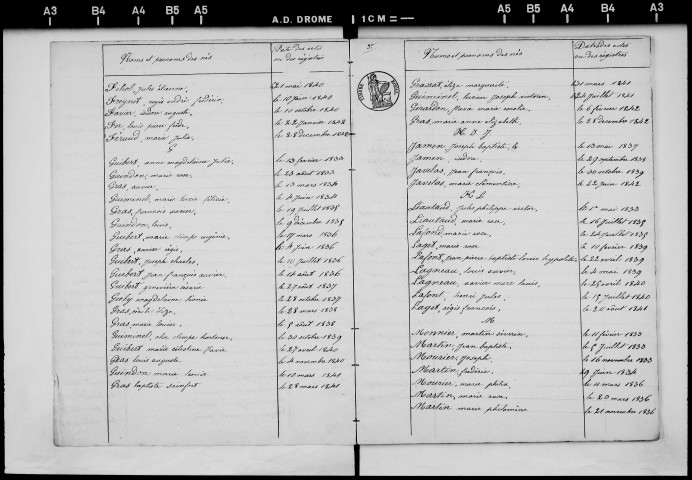 A3 B4 A4 B5 A5 A.D. DROME 1 CM A5 B5 A4 B4 A3
Noms et prénoms des nés Date des actes ou des registres
julie étienne 21 mai 1840
Freynet, regis frédéric le 10 juin 1840
Favier, isidore auguste le 10 octobre 1840
For, louis pierre frédé. le 22 janvier 1842
Féraud, marie julie le 28 decembre 1842
G
Guibert, anne magdelaine julie le 13 fevrier 1833
Guindon, marie rose le 23 aout 1833
Gras, xavier le 13 mars 1834
Guiminel, marie louis félicie le 4 juin 1834
Gras, francois xavier le 19 juillet 1835
Guindon, louis le 9 décembre 1835
Guibert, marie eugénie le 17 mars 1836
Gras, régis le 4 juin 1836
Guibert, joseph charles le 10 juillet 1836
Guibert, jean françois xavier le 14 aout 1836
Guibert genevieve le 27 aout 1837
magdelaine le 28 octobre 1837
Gras, eliza le 28 mars 1838
Gras, marie louise le 5 aout 1838
Guiminel, olimpe hortense le 30 octobre 1839
Guibert marie célestine flavie le 27 avril 1840
Gras louis auguste le 4 novembre 1840
Guindon marie le 10 mars 1841
Gras baptiste le 28 mars 1841
Noms et prenoms des nés Date des actes ou des registres
Grassat, eliza marguerite le 21 mars 1841
Guiminel, lucien joseph victorin le 24 juillet 1841
Girardon, flavie marie le 6 fevrier 1842
Gras, marie anne elizabeth le 28 decembre 1842
H. I. J
Jamen, joseph baptiste le 13 mai 1837
Jamen, isidore le 29 septembre 1838
Javelas, jean françois le 30 octobre 1839
Javelas, marie clementine le 22 juin 1842
K L
Liautaud, jules philippe victor le 1er mai 1833
Liautaud marie rose le 16 juillet 1835
Lafond, marie rose le 24 juillet 1835
Laget, marie rose le 10 fevrier 1839
Lafont, jean pierre baptiste louis hyppolite le 22 avril 1839
Lagneau, louis xavier le 4 mai 1839
Lagneau, xavier marc louis le 25 avril 1840
Lafont, henri jules le 15 juillet 1840
Laget, régis françois le 20 aout 1841
M
Monnier, martin séverin le 11 fevrier 1833
Martin, jean baptiste le 5 juillet 1833
Mourier, joseph le 16 novembre 1833
Martin, frédéric 29 juin 1834
Mourier, marie le 11 mars 1836
Martin, marie rose le 20 mars 1836
Martin marie philomène le 21 novembre 1836